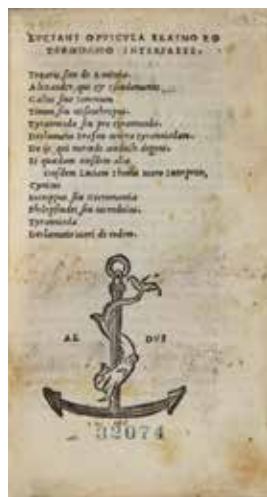 LVCIANI OPVSCVLA ERASMO RO
TERODAMO INTERPRETE.
Toxaris, siue de Amicitia.
Alexander, qui &
Gallus siue Somnium
Timon, siu Misanthropus.
Tyrannicida, siu pro tyrannicida.
Declamatio Erasmi contra tyrannicidam.
De ijs, qui mercede conducti degunt.
Et quædam eiusdem alia
Eiusdem Luciani Thoma Moro Interprete,
Cynicus
Menippus, siu Necromantia
Philopseudes, siu incredulus.
Tyrannicida
Declamatio Mori de eodem.
AL DVS
32074